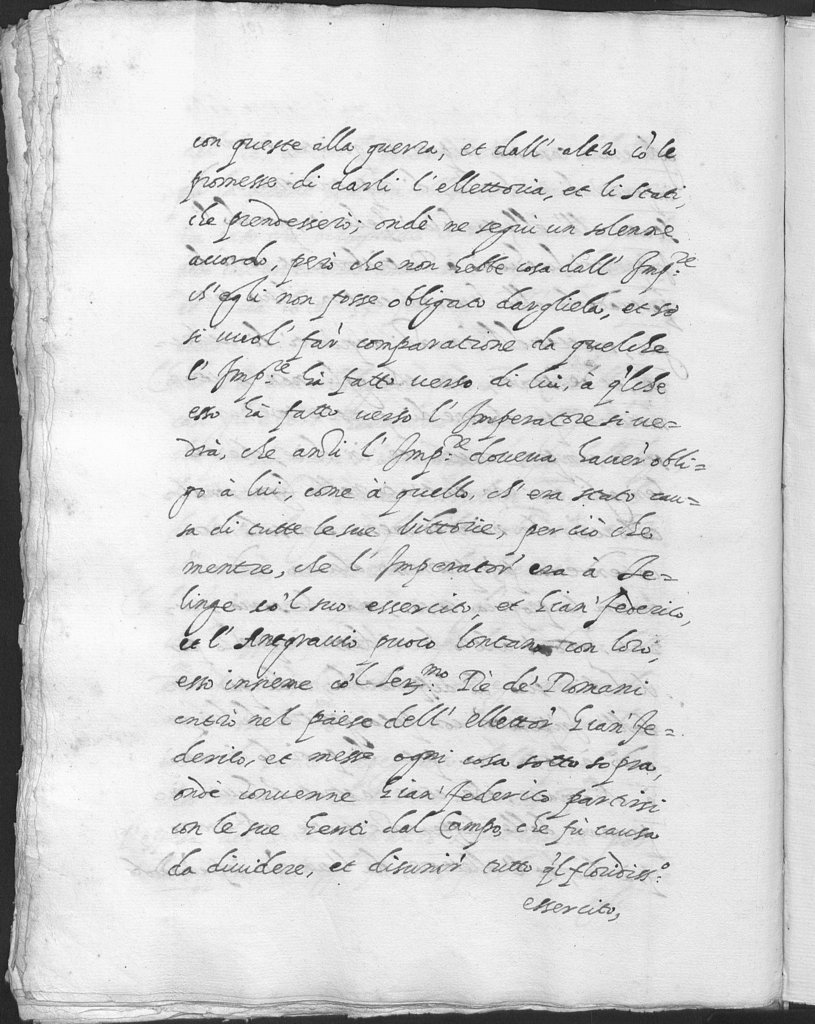 con queste alla guerra, et dall' altro cō le
promesse di darli l'ellettoria, et li Stati
che prendessero; onde ne seguì un solenne
accordo, però che non hebbe cosa dall' Imp.re
ch'egli non fosse obligato dargliela, et se
si vuol' far comparatione da quel che
l' Imp.re hà fatto verso di lui, à q'l che
esso hà fatto verso l' Imperatore si ve=
drà, che anzi l' Imp.re doueua hauer obli=
go à lui, come à quello, ch' era stato cau=
sa di tutte le sue Vittorie, perciò che
mentre, che l' Imperator' era à Ge=
linge cō'l suo essercito, et Gian' federico,
et l' Antgrauio puoco lontano con loro,
esso insieme cō'l Ser.mo Rè de' Romani
entrò nel paese dell' ellettor Gian' fe=
derico, et messe ogni cosa sotto sopra,
onde conuenne Gian' federico partirsi
con le sue Genti dal Campo, che fù causa
da diuidere, et disunir' tutto q'l floridiss.o
essercito,